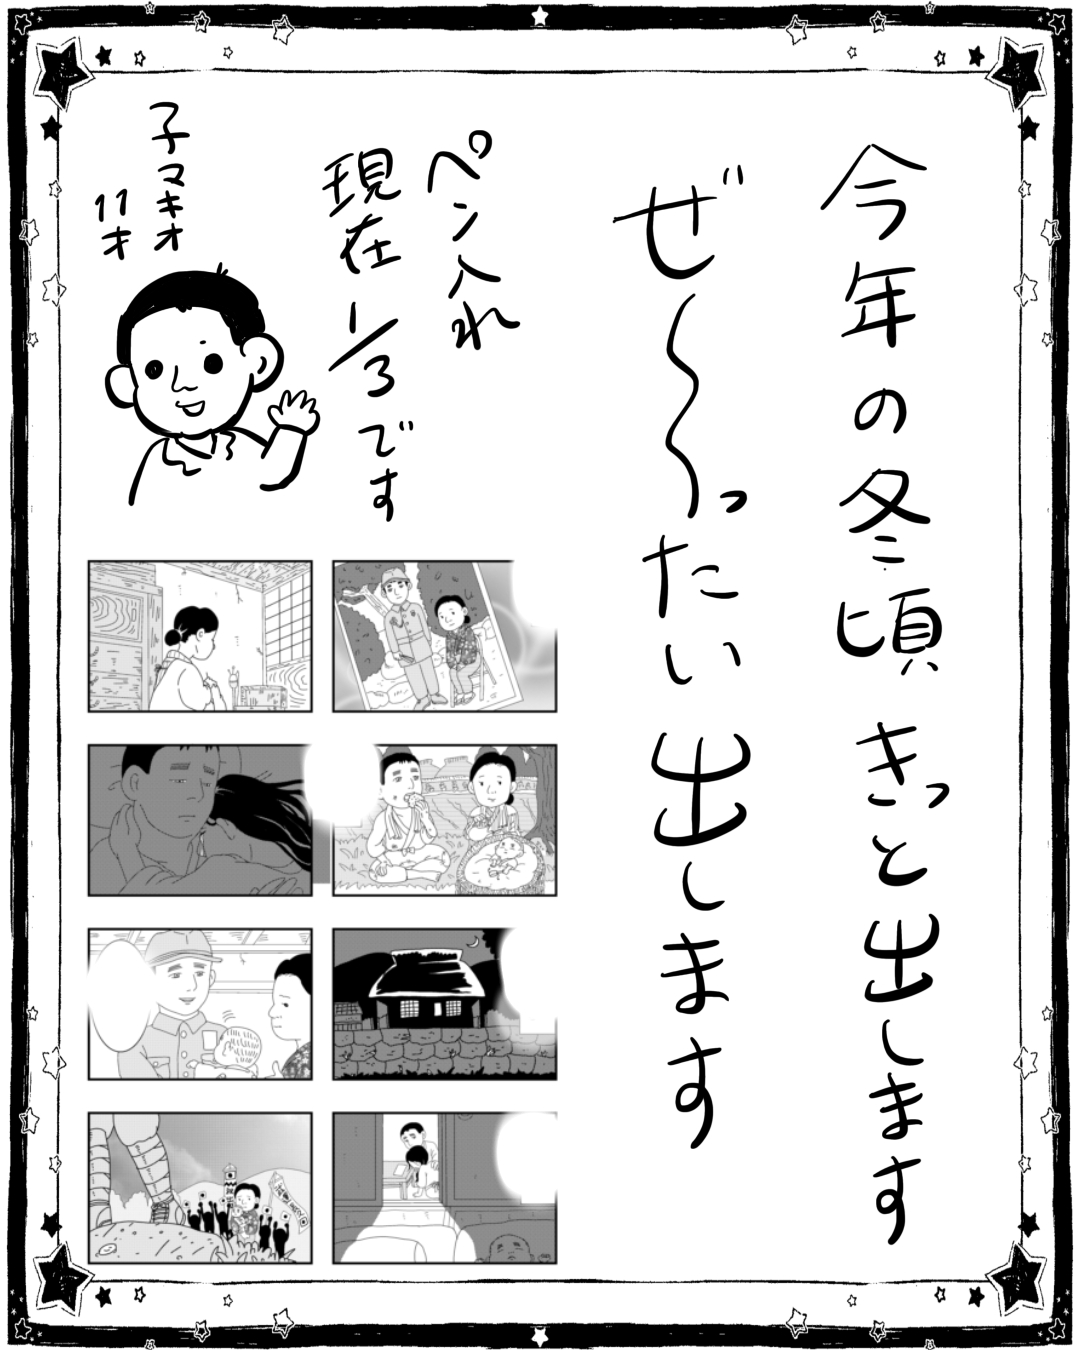 今年の冬頃きっと出します
ぜ〜ったい出します
ペン入れ
現在1/3です
子マキオ
11才